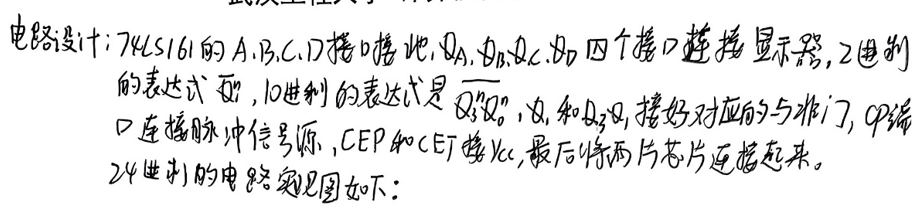 电路设计:74LS161的A.B.C.D接口接地,QA.QB.QC.QD四个接口连接显示器,2进制
的表达式,10进制的表达式是Q₃ⁿQ₀ⁿ,Q₁和Q₃Q₁接好对应的与非门,CP端
口连接脉冲信号源,CEP和CET接Vcc,最后将两片芯片连接起来。
24进制的电路实现图如下: